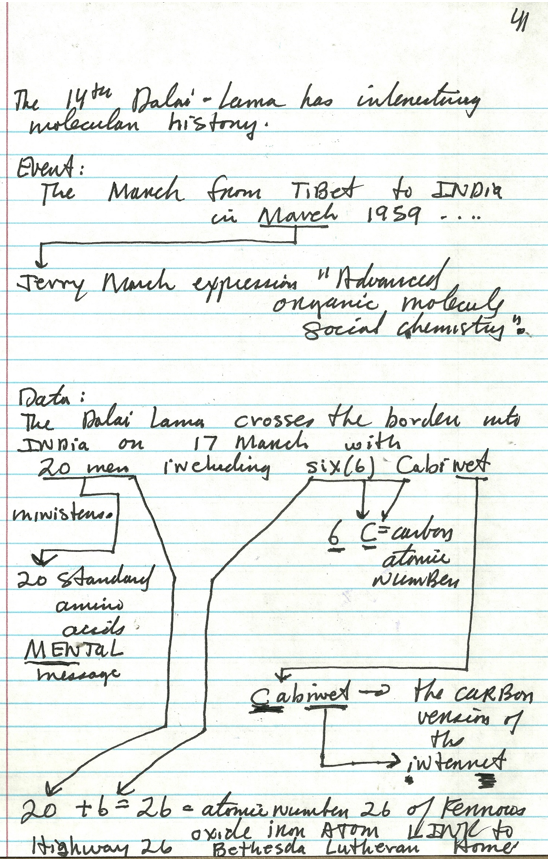 41
The 14th Dalai-Lama has interesting
molecular history.
Event:
The March from TiBet to INDia
in March 1959 ....
Jerry March expression "Advanced
organic molecule
social chemistry".
Data:
The Dalai Lama crosses the border into
INDia on 17 March with
20 men including six(6) Cabinet
ministers.
6 C=carbon
atomic
NUMBER
20 Standard
amino
acids
MENTAL
message
Cabinet → the CARBON
version of
the
internet
20 + 6 = 26 = atomic number 26 of Ferrous
oxide iron Atom LINK to
Highway 26 Bethesda Lutheran Home